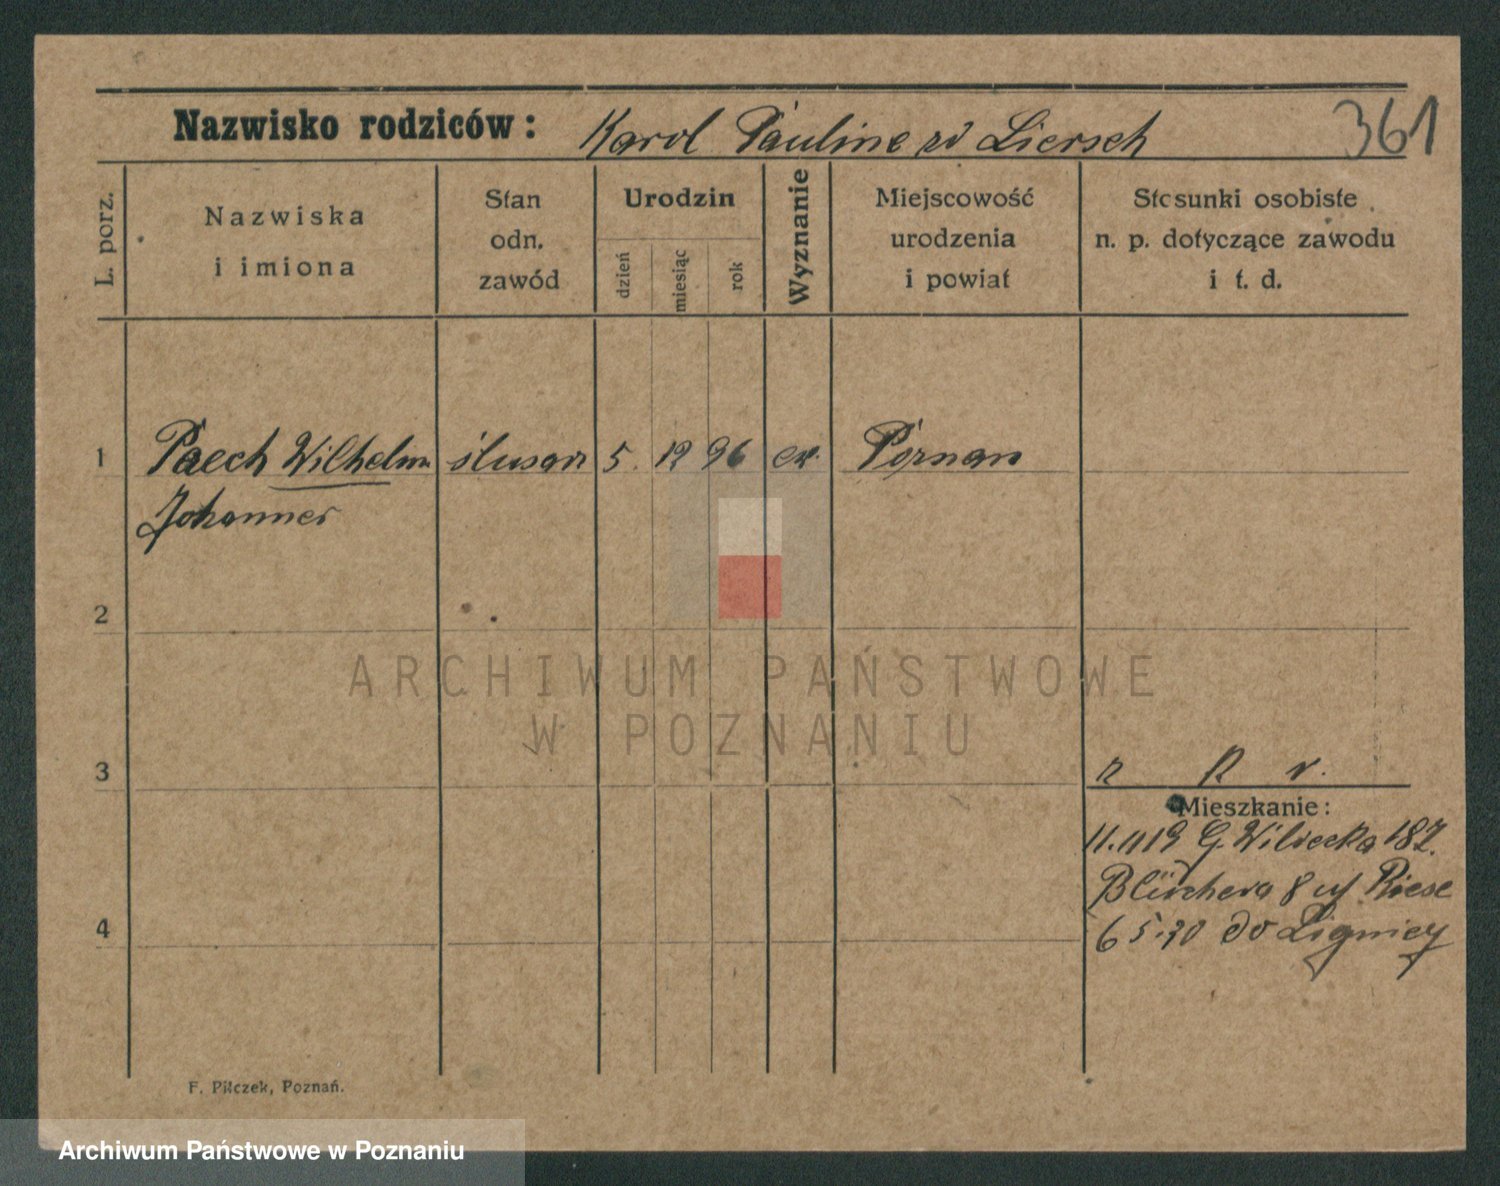 361
Nazwisko rodziców: Karol Pauline zd Liersch
L. porz.
Nazwiska
i imiona
Stan
odn.
zawód
Urodzin
dzień
miesiąc
rok
Wyznanie
Miejscowość
urodzenia
i powiat
Stosunki osobiste
n. p. dotyczące zawodu
i t. d.
1 Paech Wilhelm ślusarz 5. 12 96 ew. Poznan
Johannes
2
3
Mieszkanie:
11.119 G. Wilcecka 18
Blüchera 8 Riese
6 5.20 do Lignicy
4
F. Pilczek, Poznań.
ARCHIWUM PAŃSTWOWE
W POZNANIU
Archiwum Państwowe w Poznaniu